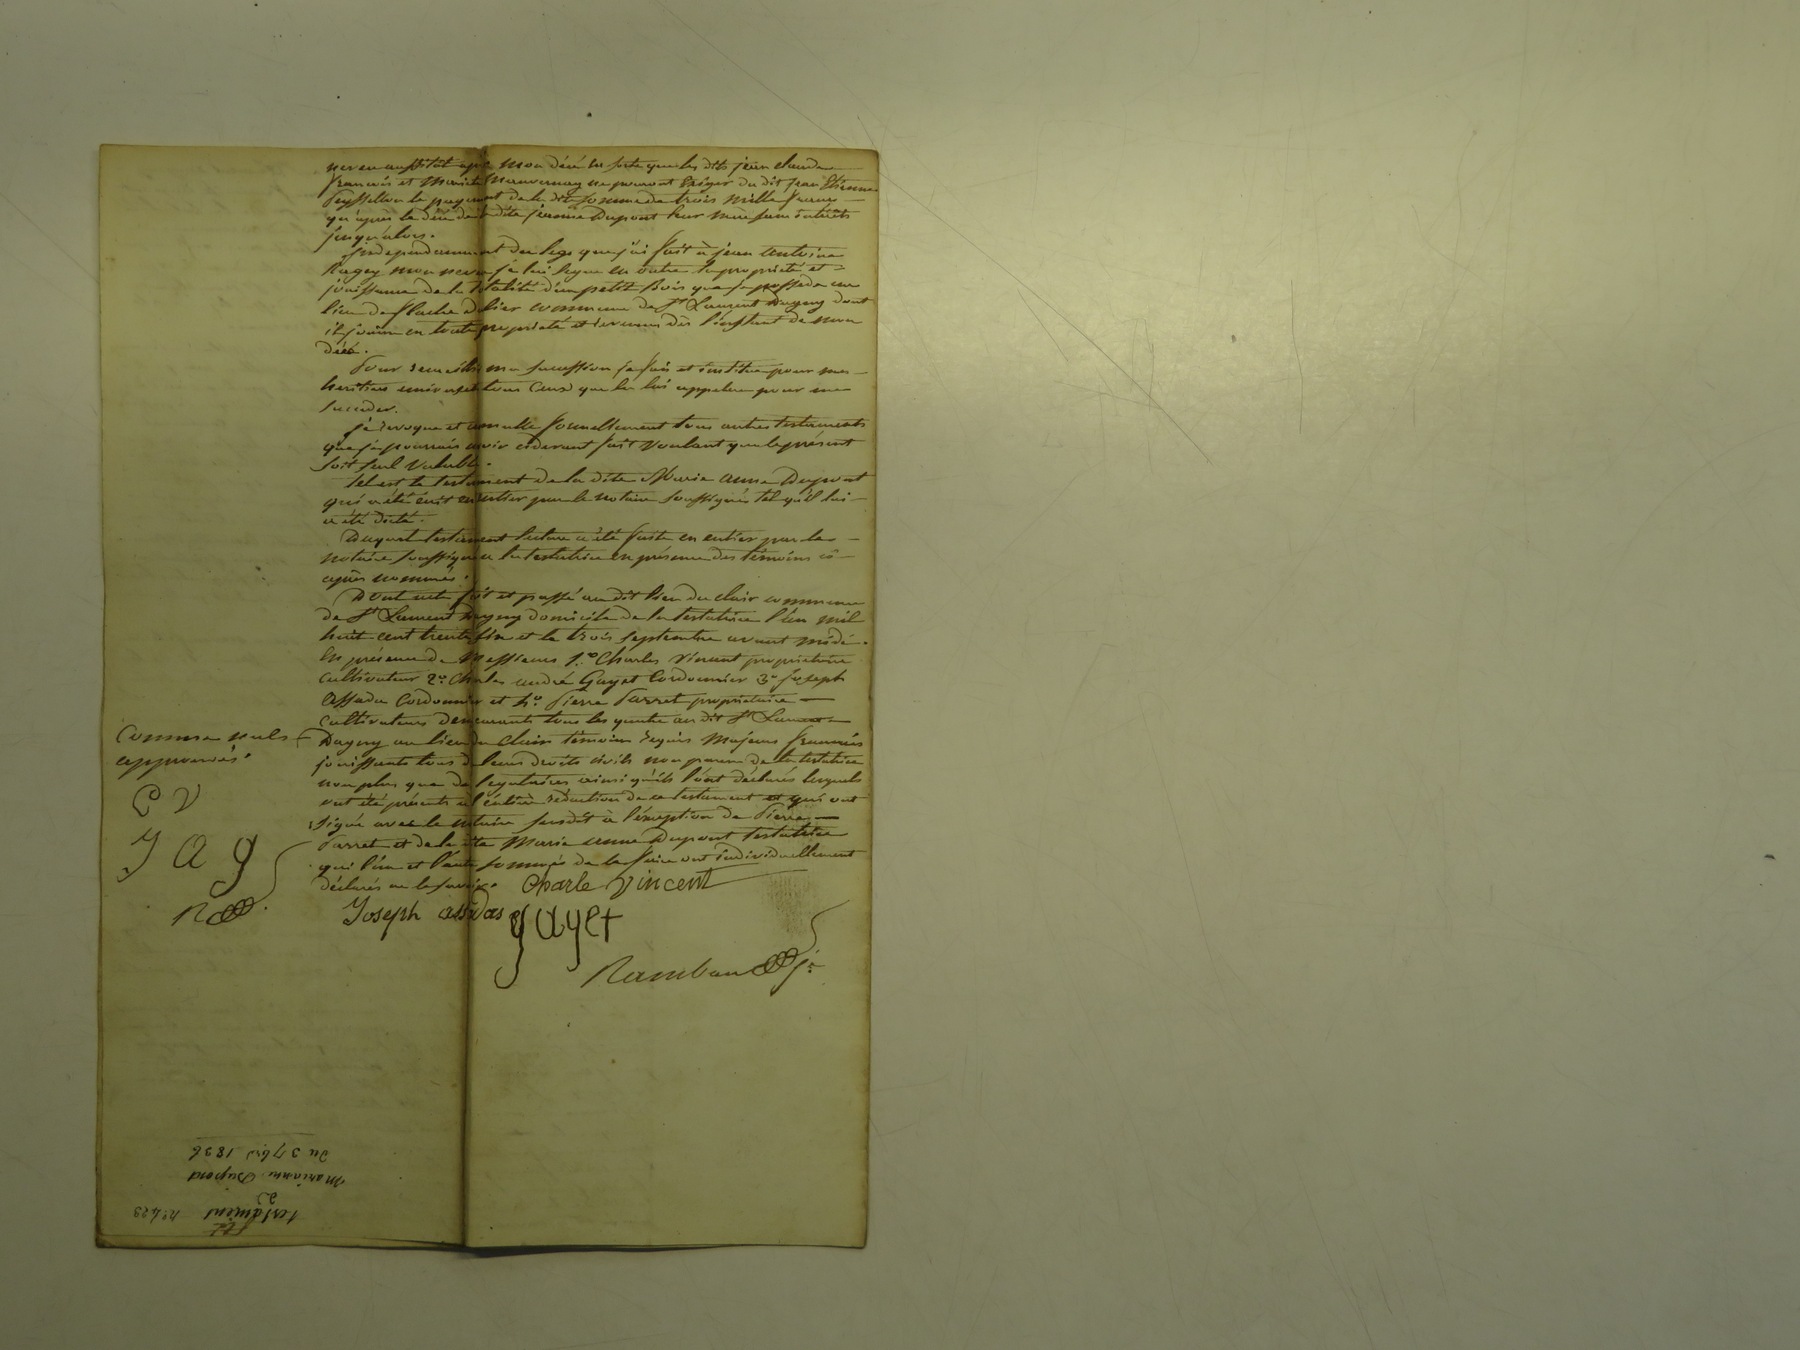 neveu aussitôt après mon décé en sorte que les dits jean claude
francois et Mariete Mauvernay ne pouront Exiger du dit jean Etienne
Peysselon le payement de la dite somme de trois mille francs
qu'après le décé de la dite jeanne Dupont leur mere sans intérêts
jusqu'alors.
Independamment du legs que j'ai fait à jean antoine
Ragey mon neveu je lui legue en outre la propriété et
jouissance de la totalité d'un petit Bois que je possède au
lieu de commune de St Laurent Dagny dont
il jouira en toute propriété et revenus dès l'instant de mon
décé.
Pour recueillir ma succession je fais et institue pour mes
heritiers universels tous Ceux que la loi appelera pour me
succeder.
Je révoque et annulle formellement tous autres testaments
que je pourrais avoir cidevant fait Voulant que le présent
soit seul Valable.
tel est le testament de la dite Marie anne Dupont
qui a été écrit en entier par le notaire soussigné tel qu'il lui
a été dicté.
Duquel testament lecture a été faite en entier par le
notaire soussigné a la testatrice en présence des témoins ci-
après nommés.
Dont acte fait et passé au dit lieu du clair commune
de St Laurent Dagny domicile de la testatrice l'an mil
huit cent trente six et le trois septembre avant midi.
En présence de Messieurs 1.º Charles Vincent proprietaire
cultivateur 2.º Charles andré Gayet Cordonnier 3.º joseph
Assada Cordonnier et 4.º Pierre Parret proprietaire
cultivateur Demeurants tous les quatre au dit St Laurent
Dagny au lieu du clair témoins requis Majeurs francais
jouissants tous de leurs droits civils non parens de la testatrice
non plus que des legataires ainsi qu'ils l'ont déclarés lesquels
ont été présents à l'entière rédaction de ce testament et qui ont
signé avec le notaire susdit à l'éxception de Pierre
Parret et de la dite Marie anne Dupont testatrice
qui l'un et l'autre sommés de le faire ont individuellement
déclarés ne le savoir.
Charle Vincent
Joseph assadas
gayet
Rambaud jne
approuvés.
C V
J A g
R
Std
testament nº 423
de
Marianne Dupond
Du 3 7bre 1836